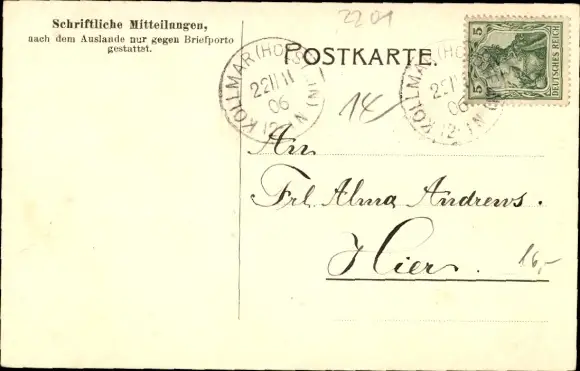 Schriftliche Mitteilungen,
nach dem Auslande nur gegen Briefporto
gestattet.
2201
POSTKARTE.
5 5
DEUTSCHES REICH
KOLLMAR (HOLSTEIN)
22 11
06
12-1 N
KOLLMAR (HO
06
12-1 N
14
An
Frl. Alma Andrews.
Hier.
16,-